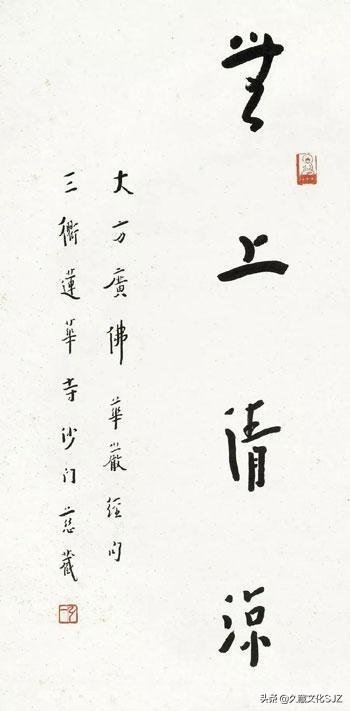 無上清涼
大方廣佛華嚴經句
三衢蓮華寺沙門慈藏
头条 @久藏文化SJZ